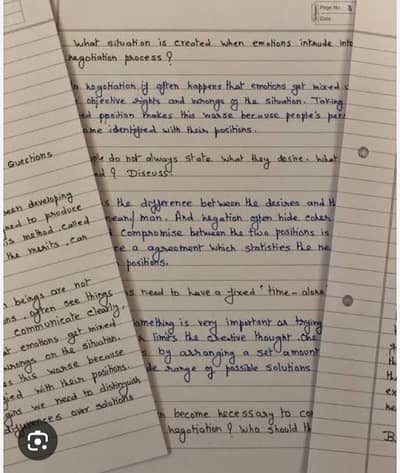 Page No. 3
Date:
what situation is created when emotions intrude into
negotiation process ?
negotiation if often happens that emotions get mixed
objective rights and wrongs of the situation. Taking
position makes this worse because people's
identified with their positions.
do not always state what they desire. what
? Discuss
s the difference between the desires and
man. And negation often hide
compromise between the two positions is
a agreetment which statisties the ne
positions.
need to have a fixed "time-alone
something is very important as trying
limits the creative thought. One
s by arranging a set amount
range of possible solutions
become necessary to co
nagotiation ? who should th
Questions
been developing
to produce
is method called
the merits, can
beings are not
often see things
communicate clearly.
emotions get mixed
wrongs on the situation.
this worse because
with their positions.
we need to distinguish
over solutions
th
H
ex
he
B